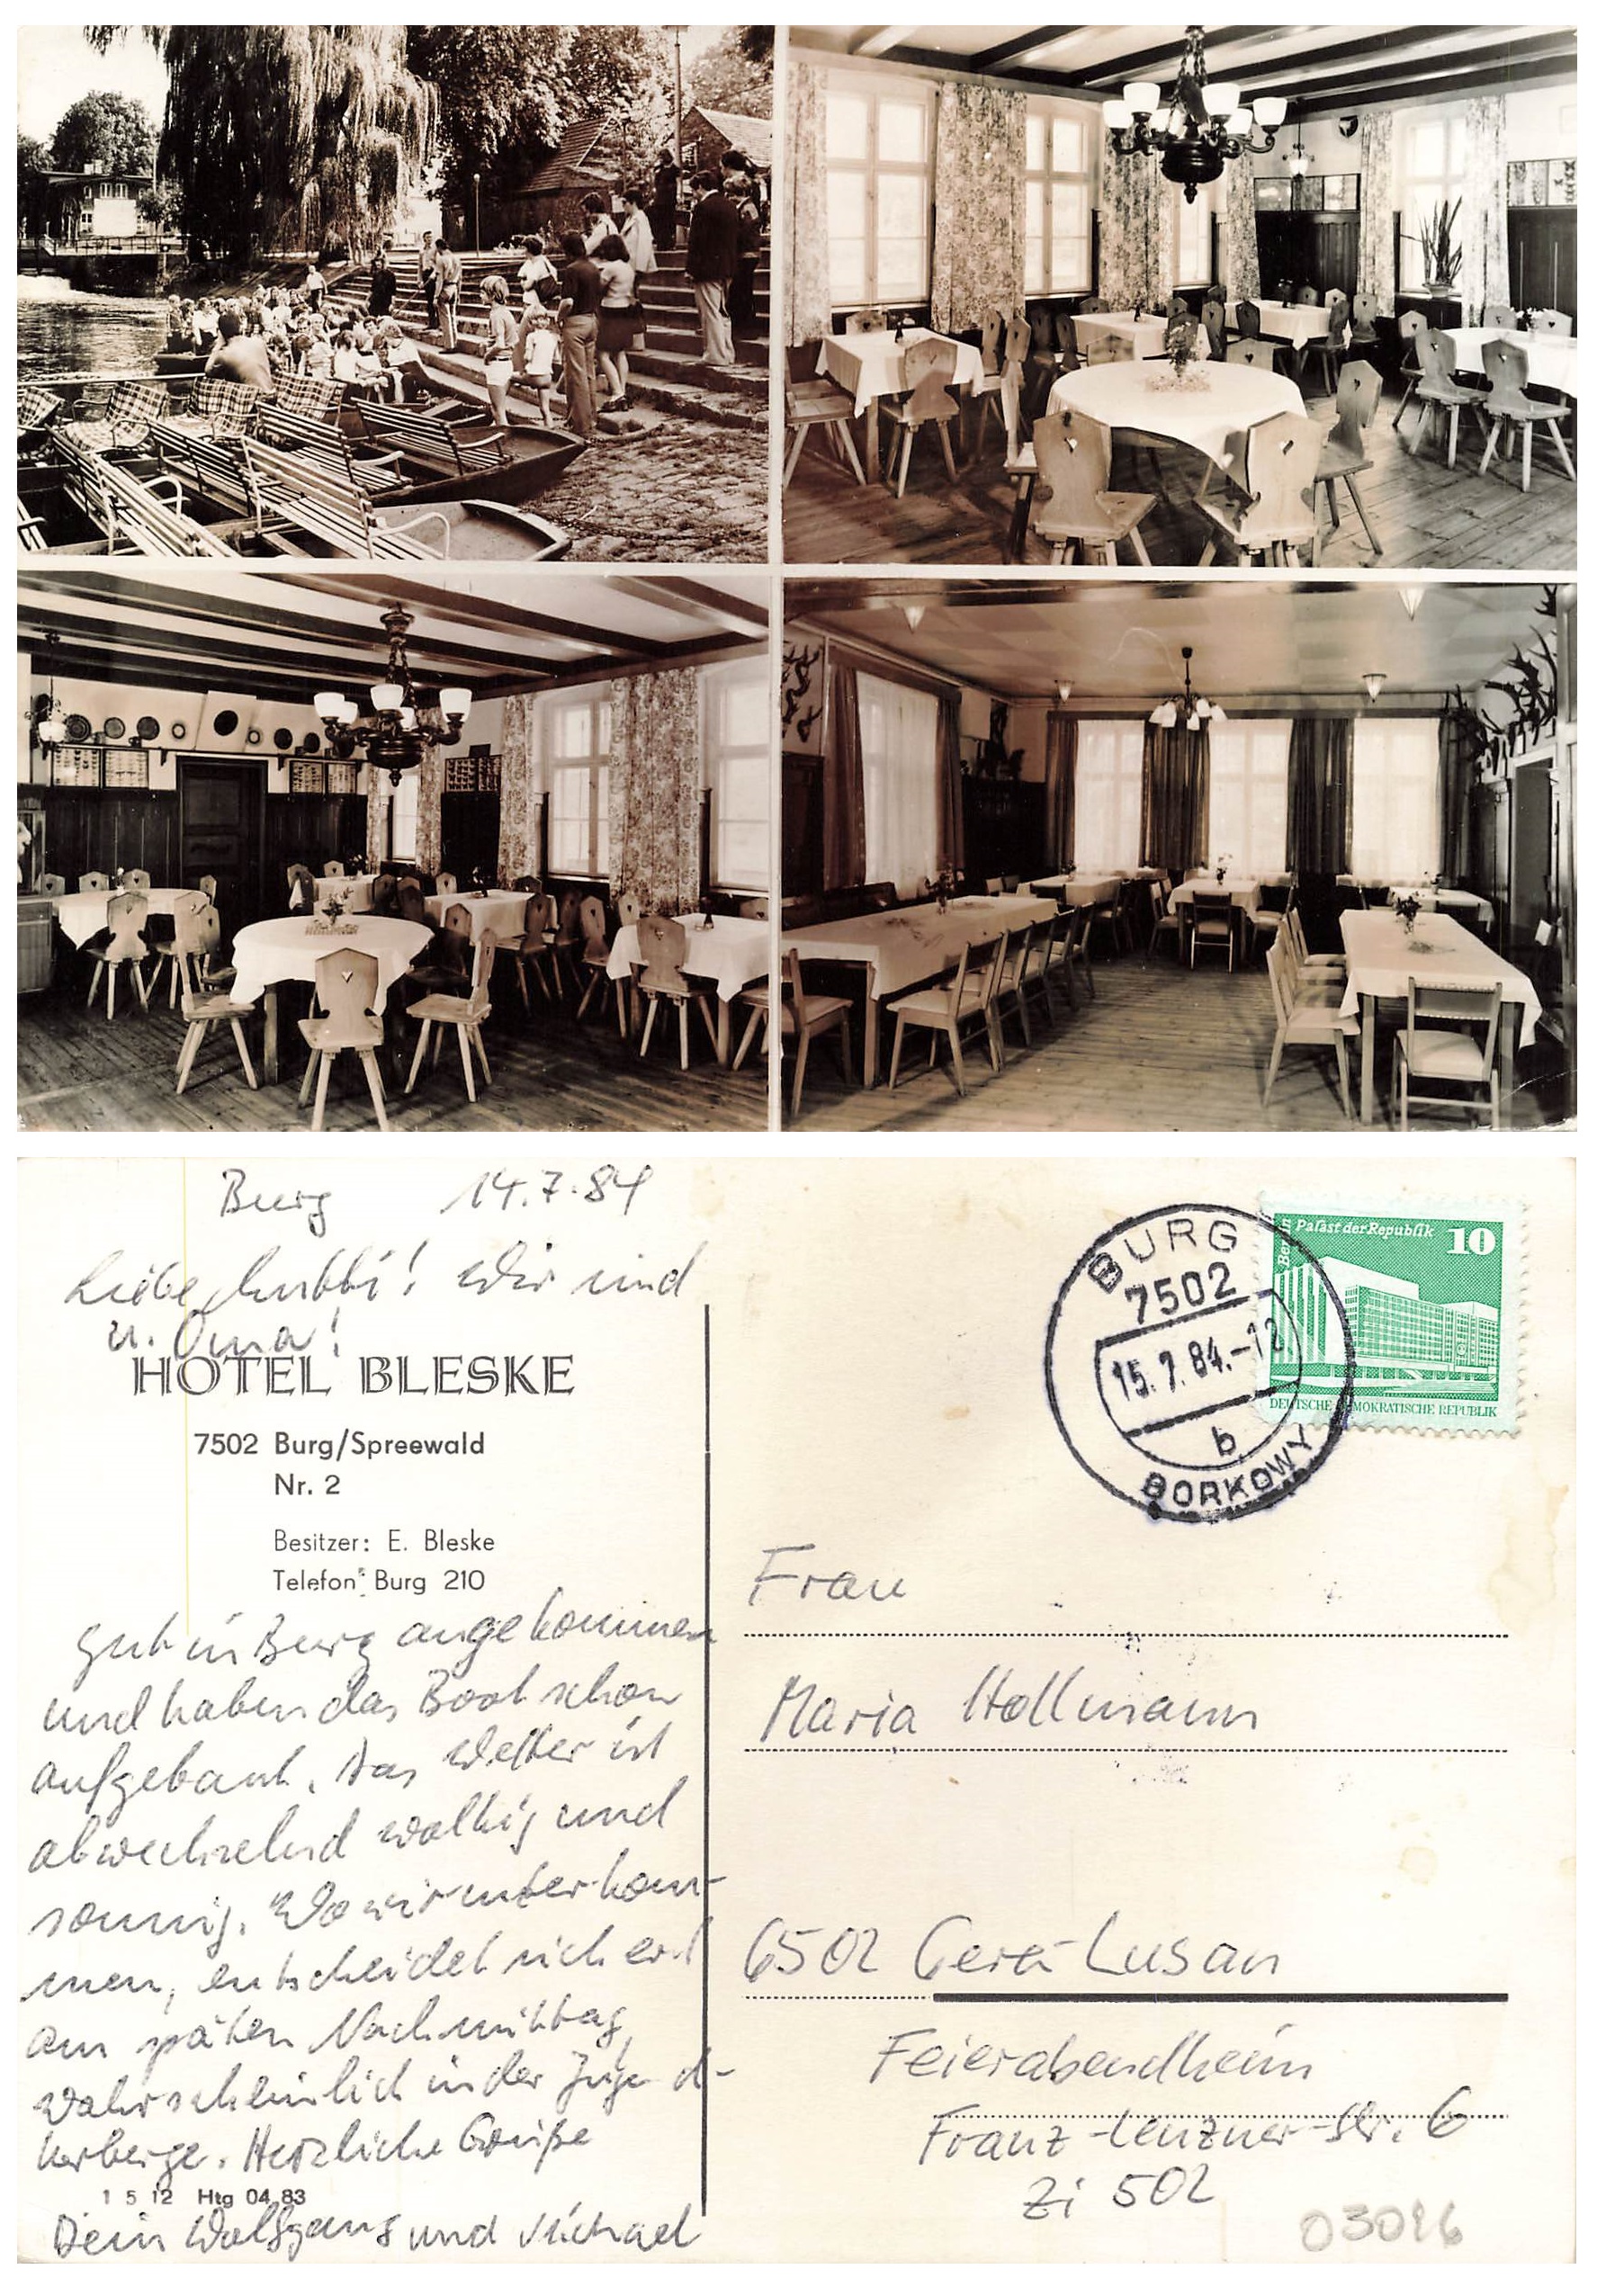 Burg 14.7.84
Liebe Mutti! Wir sind
u. Oma!
HOTEL BLESKE
7502 Burg/Spreewald
Nr. 2
Besitzer: E. Bleske
Telefon: Burg 210
gut in Burg angekommen
und haben das Boot schon
aufgebaut. Das Wetter ist
abwechselnd wolkig und
sonnig. Wo wir unterkom-
men, entscheidet sich erst
am späten Nachmittag,
wahrscheinlich in der Jugend-
herberge. Herzliche Grüße
1 5 12 Htg 04 83
Dein Wolfgang und Michael
BURG
7502
15.7.84.-12
b
BORKOWY
Berlin Palast der Republik 10
DEUTSCHE DEMOKRATISCHE REPUBLIK
Frau
Maria Hollmann
6502 Gera-Lusan
Feierabendheim
Franz-Lenzner-Str. 6
Zi 502
03016